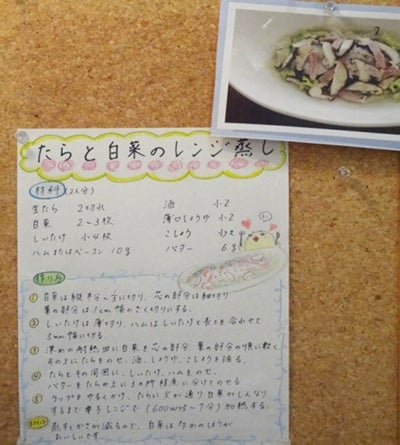 たらと白菜のレンジ蒸し
材料(2人分)
生たら 2切れ
白菜 2~3枚
しいたけ 小4枚
ハムまたはベーコン 10g
酒 小2
薄口しょうゆ 小2
こしょう 少々
バター 6g
作り方
① 白菜は縦半分に切り、芯の部分は細切り
葉の部分は1cm幅のざく切りにする。
② しいたけは薄切り、ハムはしいたけと長さを合わせて
5mm幅に切る。
③ 深めの耐熱皿に白菜を芯の部分、葉の部分の順に敷く
その上にたらをのせ、酒、しょうゆ、こしょうを振る。
④ たらとその周囲に、しいたけ、ハムをのせ、
バターをたらの上に3ヵ所程度に分けてのせる
⑤ ラップをゆるくかけ、たらに火が通り白菜がしんなり
するまで電子レンジで(600Wで5~7分)加熱する。
蒸すとかさが減るので、白菜は多めのほうが
おいしいです。